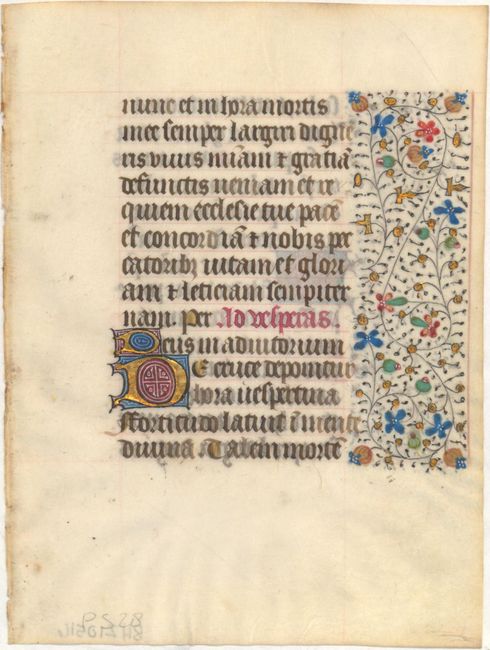 nunc et in hora mortis
mee semper largiri digne
ris vivis miam ⁊ gratiā
defunctis veniam et re
quiem ecclesie tue pacē
et concordiā ⁊ nobis pec
catoribȝ vitam et glori
am ⁊ leticiam sempiter
nam. Per Ad vesperas
Deus in adiutorium
De cruce deponitur
hora vespertina
fortitudo latuit ī mente
divina Talem mortē